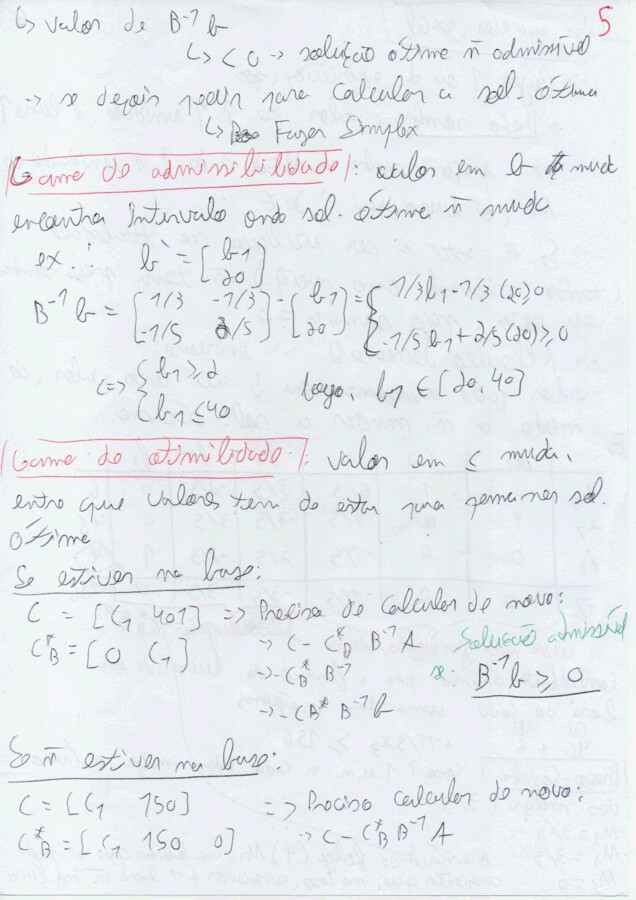 5
↳ valor de B⁻¹ b
↳ < 0 → solução ótima ñ admissível
→ se depois pedir para calcular a sol. ótima
↳ Fazer Simplex
Game de admissibilidade: valor em b muda
encontra intervalo onde sol. ótima ñ muda
ex: b = [b1 20]
B⁻¹ b = [1/3 -1/3 -1/5 2/5] · [b1 20] = { 1/3 b1 - 1/3 (20) ≥ 0
-1/5 b1 + 2/5 (20) ≥ 0
<=> { b1 ≥ 2
b1 ≤ 40
logo, b1 ∈ [20, 40]
Game de otimilidade: valor em c muda.
entre que valores tem de estar para permanecer sol.
ótima
Se estiver na base:
C = [C1 40 1] => Precisa de calcular de novo:
C*B = [0 C1] → C - C*B B⁻¹ A
→ - C*B B⁻¹
→ - CB* B⁻¹ b
Solução admissível
B⁻¹ b ≥ 0
Se ñ estiver na base:
C = [C1 150] => Precisa calcular de novo:
C*B = [C1 150 0] → C - C*B B⁻¹ A